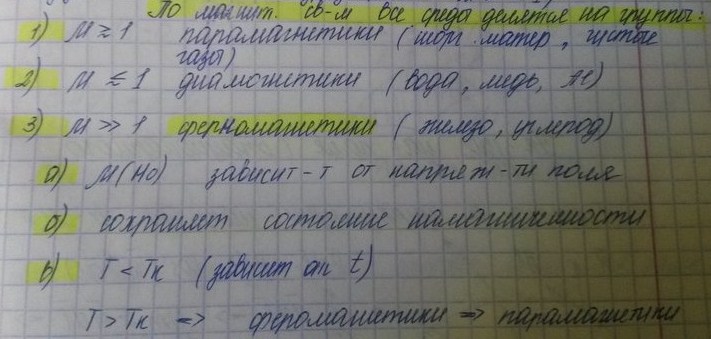 По магнит. св-м все среды делятся на группы:
1) μ ≳ 1 парамагнетики (неорг. матер, чистые
газы)
2) μ ≲ 1 диамогнетики (вода, медь, Al)
3) μ >> 1 ферномагнетики (железо, углерод)
а) μ(H0) зависит-т от напряж-ти поля
б) сохраняет состояние намагниченности
в) T < Tк (зависит от t)
T > Tк => феромагнетики => парамагнетики